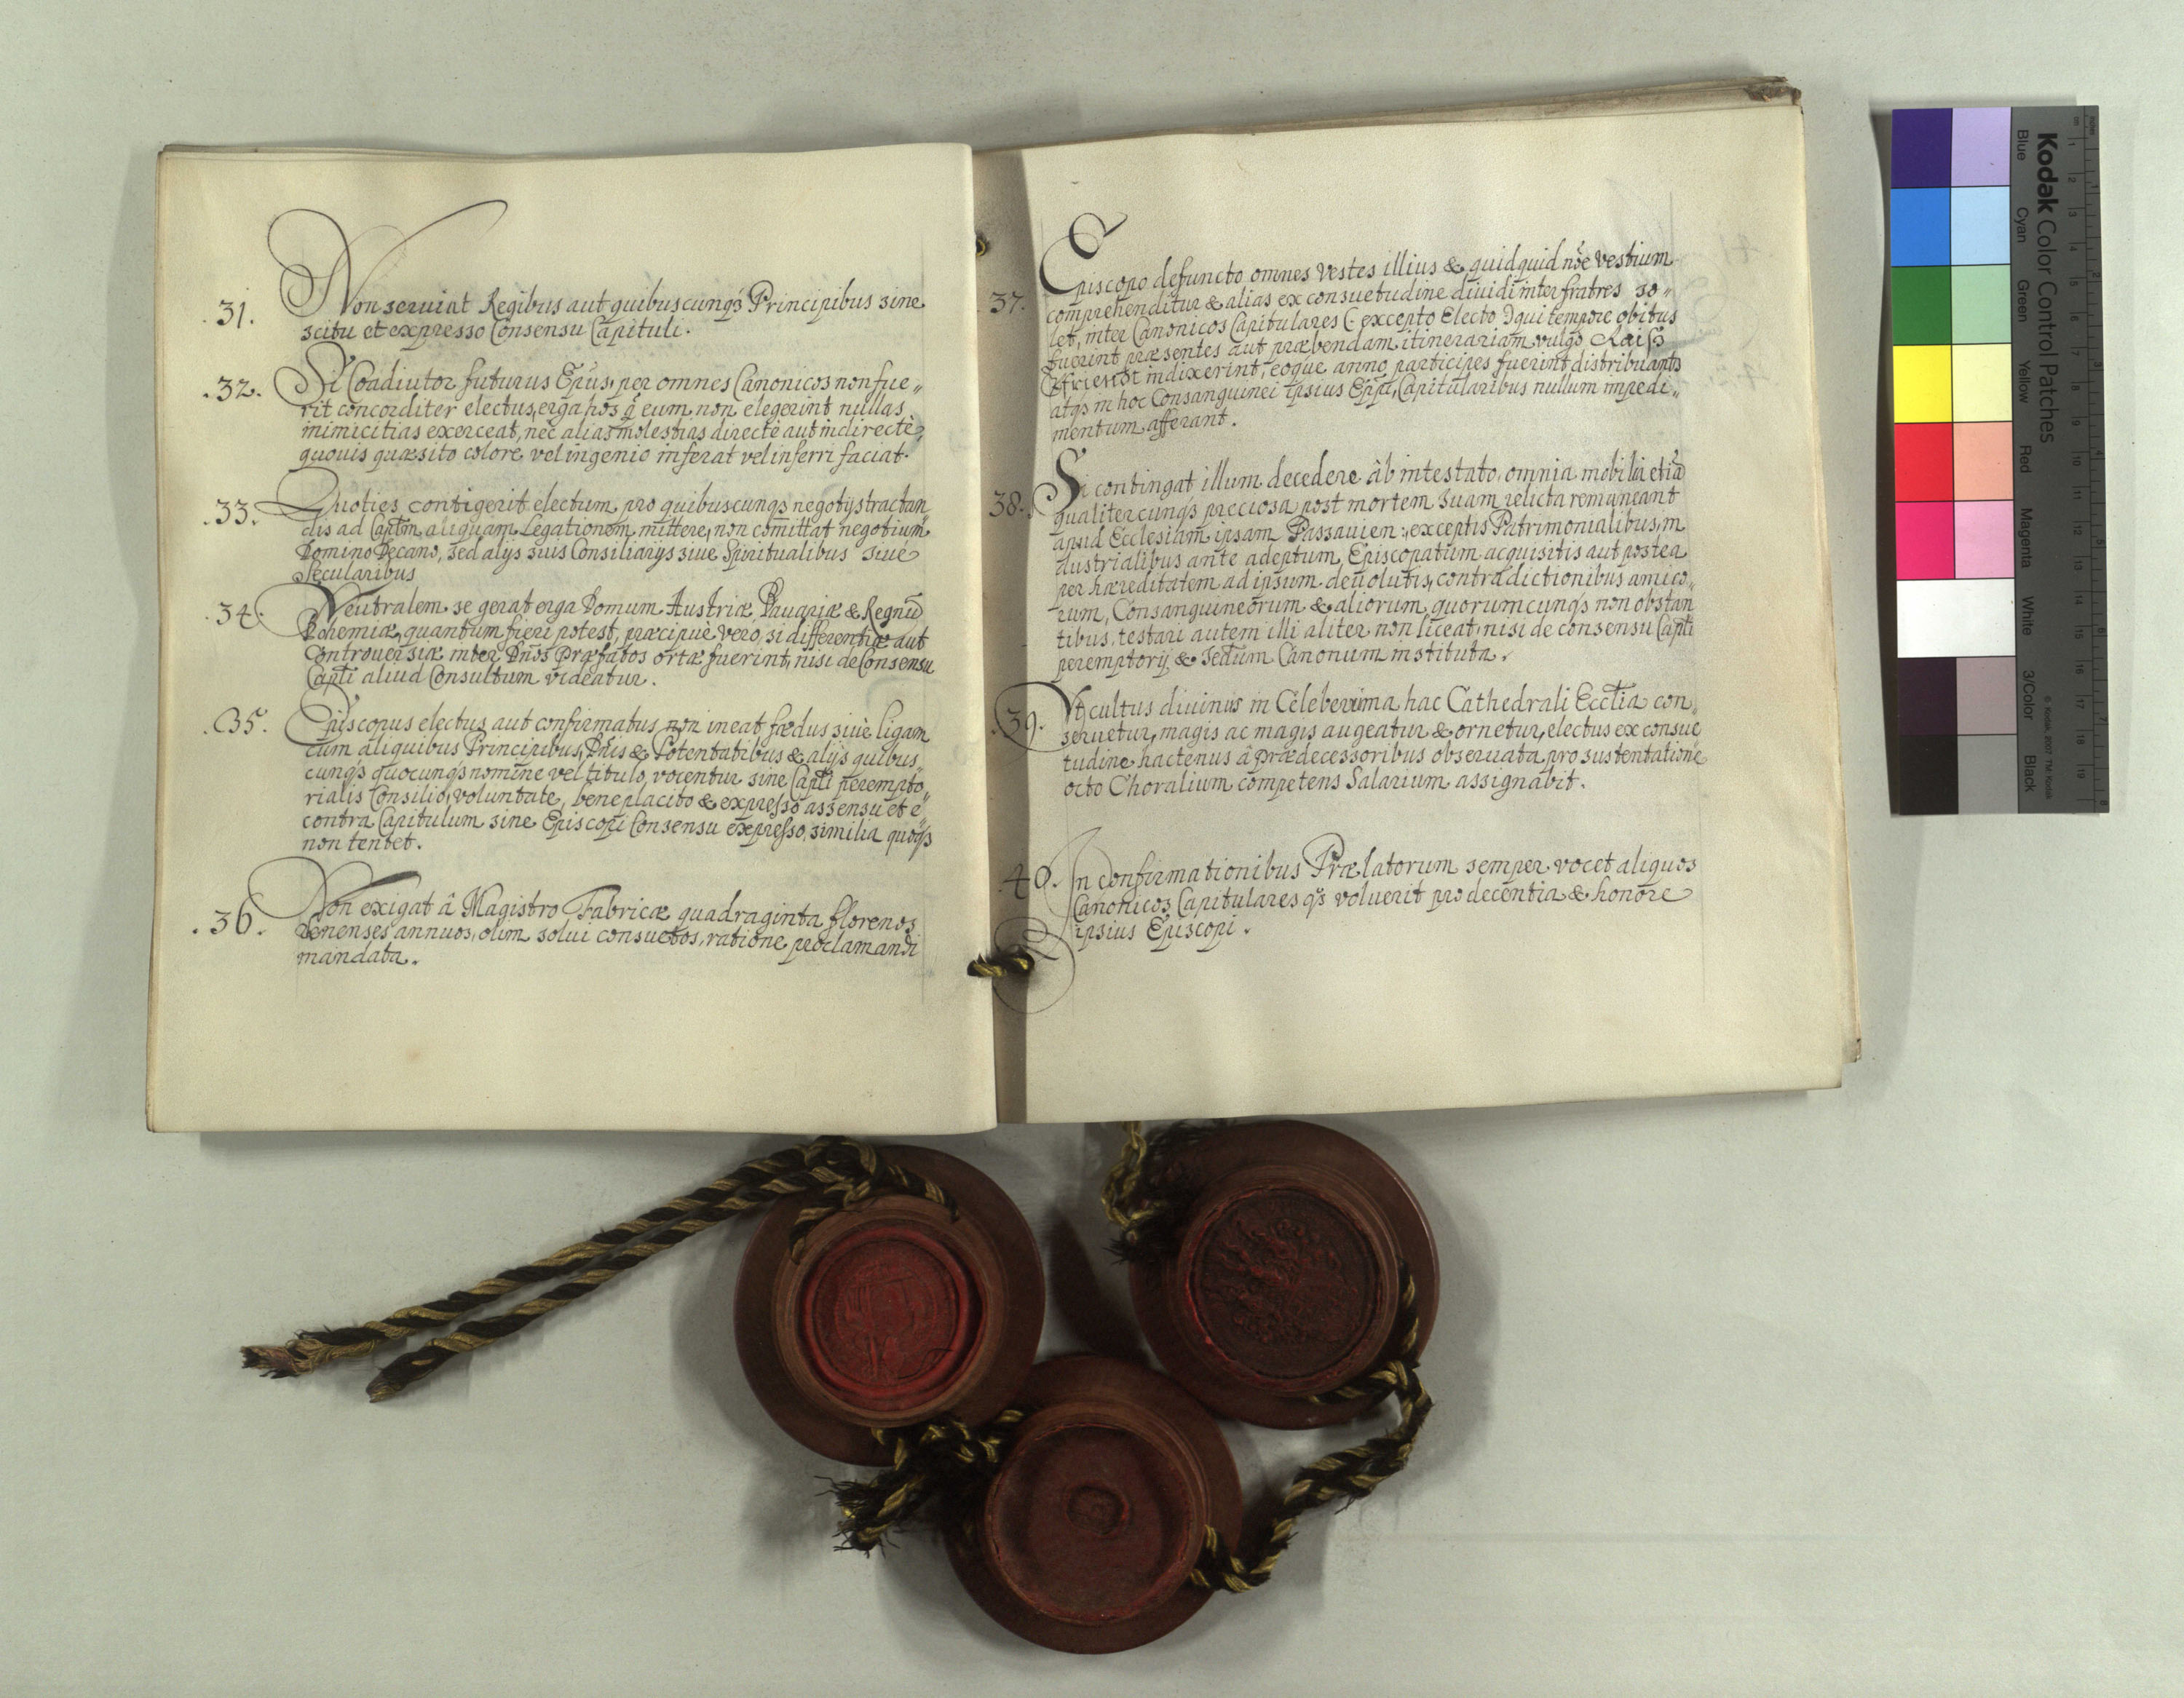 31. Non seruiat Regibus aut quibuscunqs Principibus sine
scitu et expresso Consensu Capituli.
32. Si Coadiutor futurus Epūs, per omnes Canonicos non fue„
rit concorditer electus, erga hos q̄ eum non elegerint nullas
inimicitias exerceat, nec alias molestias directè aut indirectè,
quouis quæsito colore, vel ingenio inferat vel inferri faciat.
33. Quoties contigerit electum, pro quibuscunqs negotijs tractan„
dis ad Captm̄ aliquam Legationem mittere, non com̄ittat negotium
Domino Decano, sed alijs suis Consiliarijs siue Spiritualibus siue
Secularibus
34. Neutralem se gerat erga Domum Austriæ, Bauariæ & Regnū
Bohemiæ, quantum fieri potest, præcipuè vero, si differentiæ aut
Controuersiæ inter Dn̄os Præfatos ortæ fuerint, nisi de Consensu
Capłi aliud Consultum videatur.
35. Episcopus electus aut confirmatus non ineat fædus siuè ligam
cum aliquibus Principibus, Dn̄is & Potentatibus & alijs quibus„
cunqs quocunqs nomine vel titulo, vocentur sine Capłi perempto„
rialis Consilio, voluntate, beneplacito & expresso assensu et è„
contra Capitulum sine Episcopi Consensu expresso, similia quoqs
non tentet.
36. Non exigat â Magistro Fabricæ quadraginta florenos
Denenses annuos, olim solui consuetos, ratione proclamandi
mandata.
37. Episcopo defuncto omnes vestes illius & quidquid nōe vestium
comprehenditur & alias ex consuetudine diuidi inter fratres so„
let, inter Canonicos Capitulares (excepto Electo) qui tempore obitus
fuerint præsentes aut præbendam itinerariam vulgò Raiß
indixerint, eoque anno participes fuerint distribuantr
atqs in hoc Consanguinei ipsius Epp̄i, Capitularibus nullum impedi„
mentum afferant.
38. Si contingat illum decedere ab intestato, omnia mobilia etiā
qualitercunqs preciosa post mortem suam relicta remaneant
apud Ecclesiam ipsam Passauien: exceptis Patrimonialibus, in„
dustrialibus ante adeptum Episcopatum acquisitis aut postea
per hæreditatem ad ipsum deuolutis, contradictionibus amico„
rum, Consanguineorum & aliorum quorumcunqs non obstan
tibus, testari autem illi aliter non liceat, nisi de consensu Capłi
peremptorij & secdum Canonum instituta.
39. Vt cultus diuinus in Celeberrima hac Cathedrali Eccłia con„
seruetur, magis ac magis augeatur & ornetur, electus ex consue
tudine hactenus â Prædecessoribus obseruata, pro sustentatione
octo Choralium competens Salarium assignabit.
40. In confirmationibus Prælatorum semper vocet aliquos
Canonicos Capitulares qs voluerit pro decentia & honore
ipsius Episcopi.
Kodak Color Control Patches
Blue Cyan Green Yellow Red Magenta White 3/Color Black